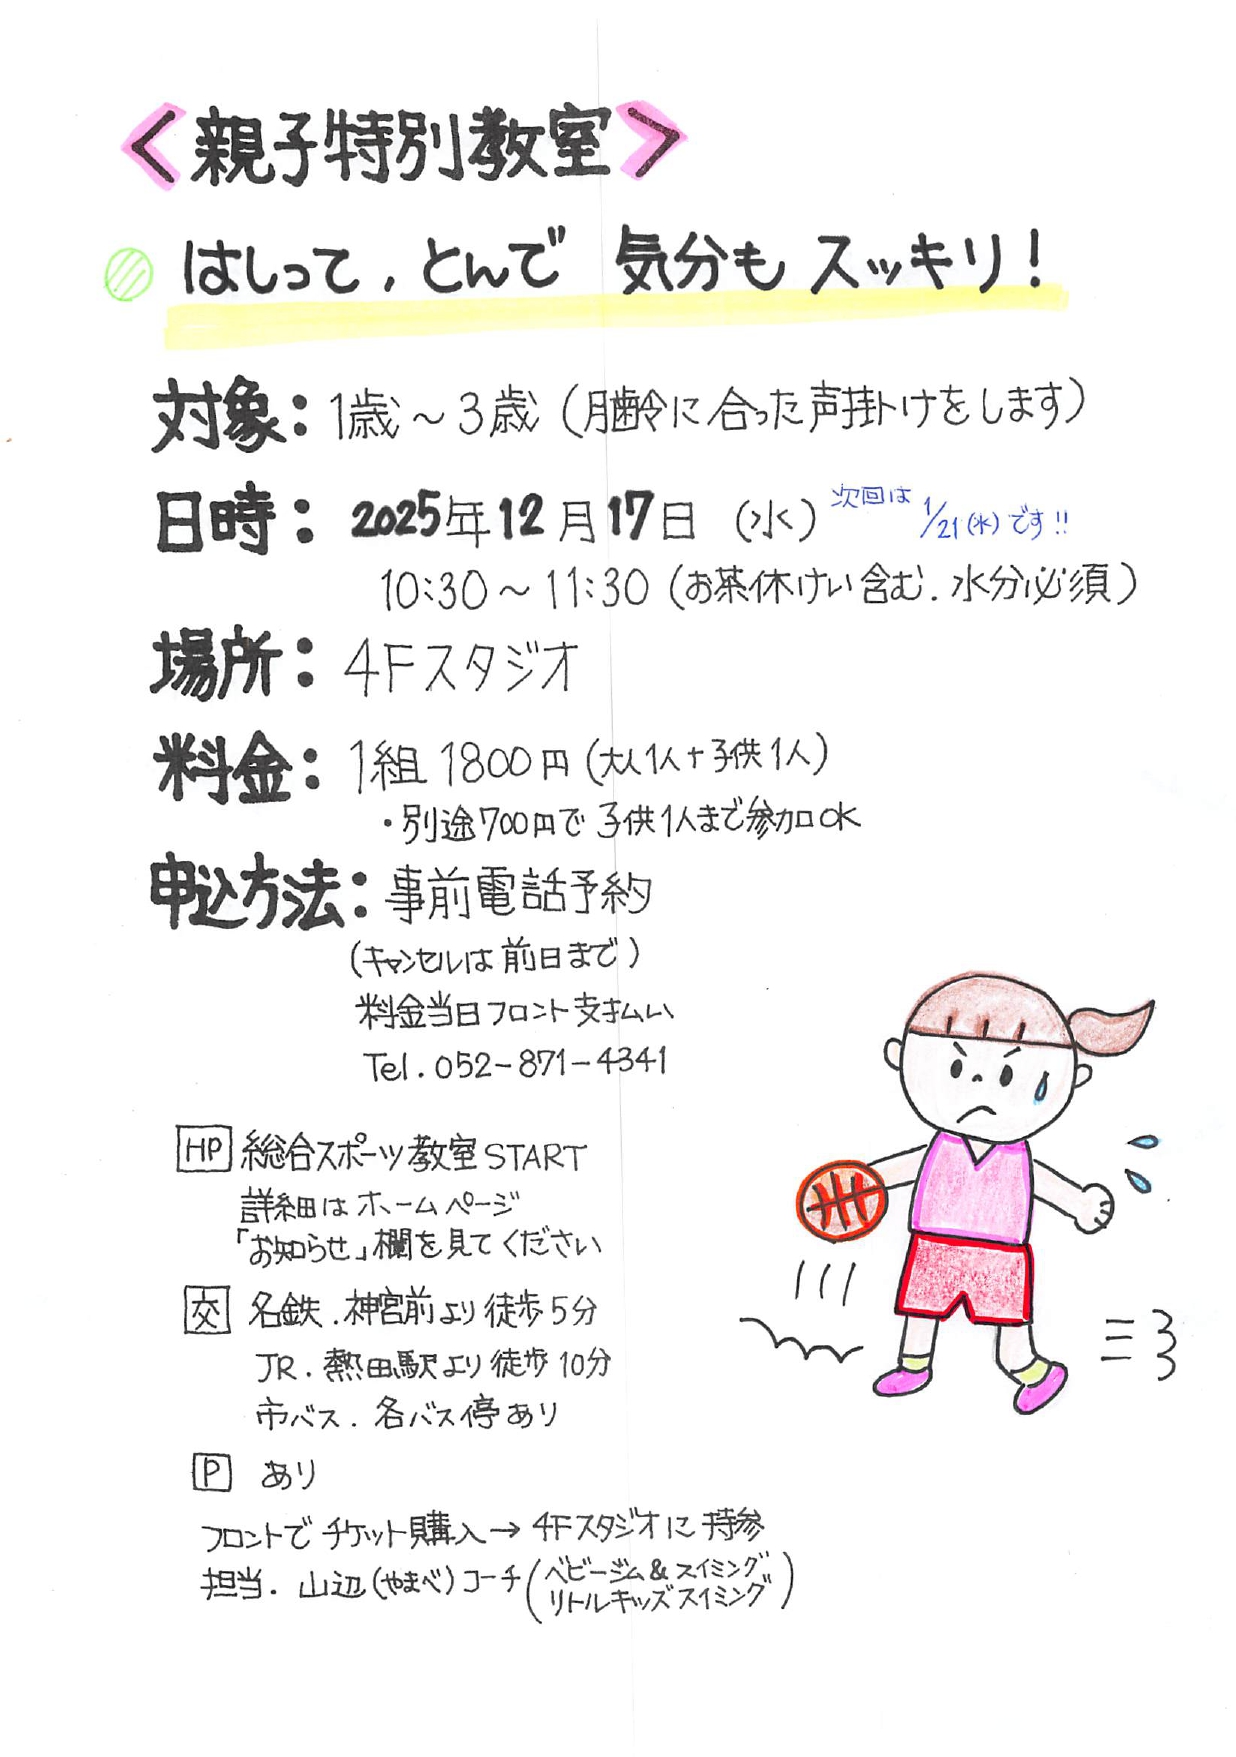 <親子特別教室>
はしって,とんで 気分も スッキリ!
対象: 1歳~3歳(月齢に合った声掛けをします)
日時: 2025年12月17日(水) 次回は 1/21(水)です!!
10:30~11:30(お茶休けい含む.水分必須)
場所: 4Fスタジオ
料金: 1組1800円(大人1人+子供1人)
・別途700円で子供1人まで参加OK
申込方法: 事前電話予約
(キャンセルは前日まで)
料金当日フロント支払い
Tel.052-871-4341
HP 総合スポーツ教室START
詳細はホームページ
「お知らせ」欄を見てください
交 名鉄.神宮前より徒歩5分
JR.熱田駅より徒歩10分
市バス.各バス停あり
P あり
フロントでチケット購入→4Fスタジオに持参
担当.山辺(やまべ)コーチ(ベビージム&スイミング
リトルキッズスイミング)